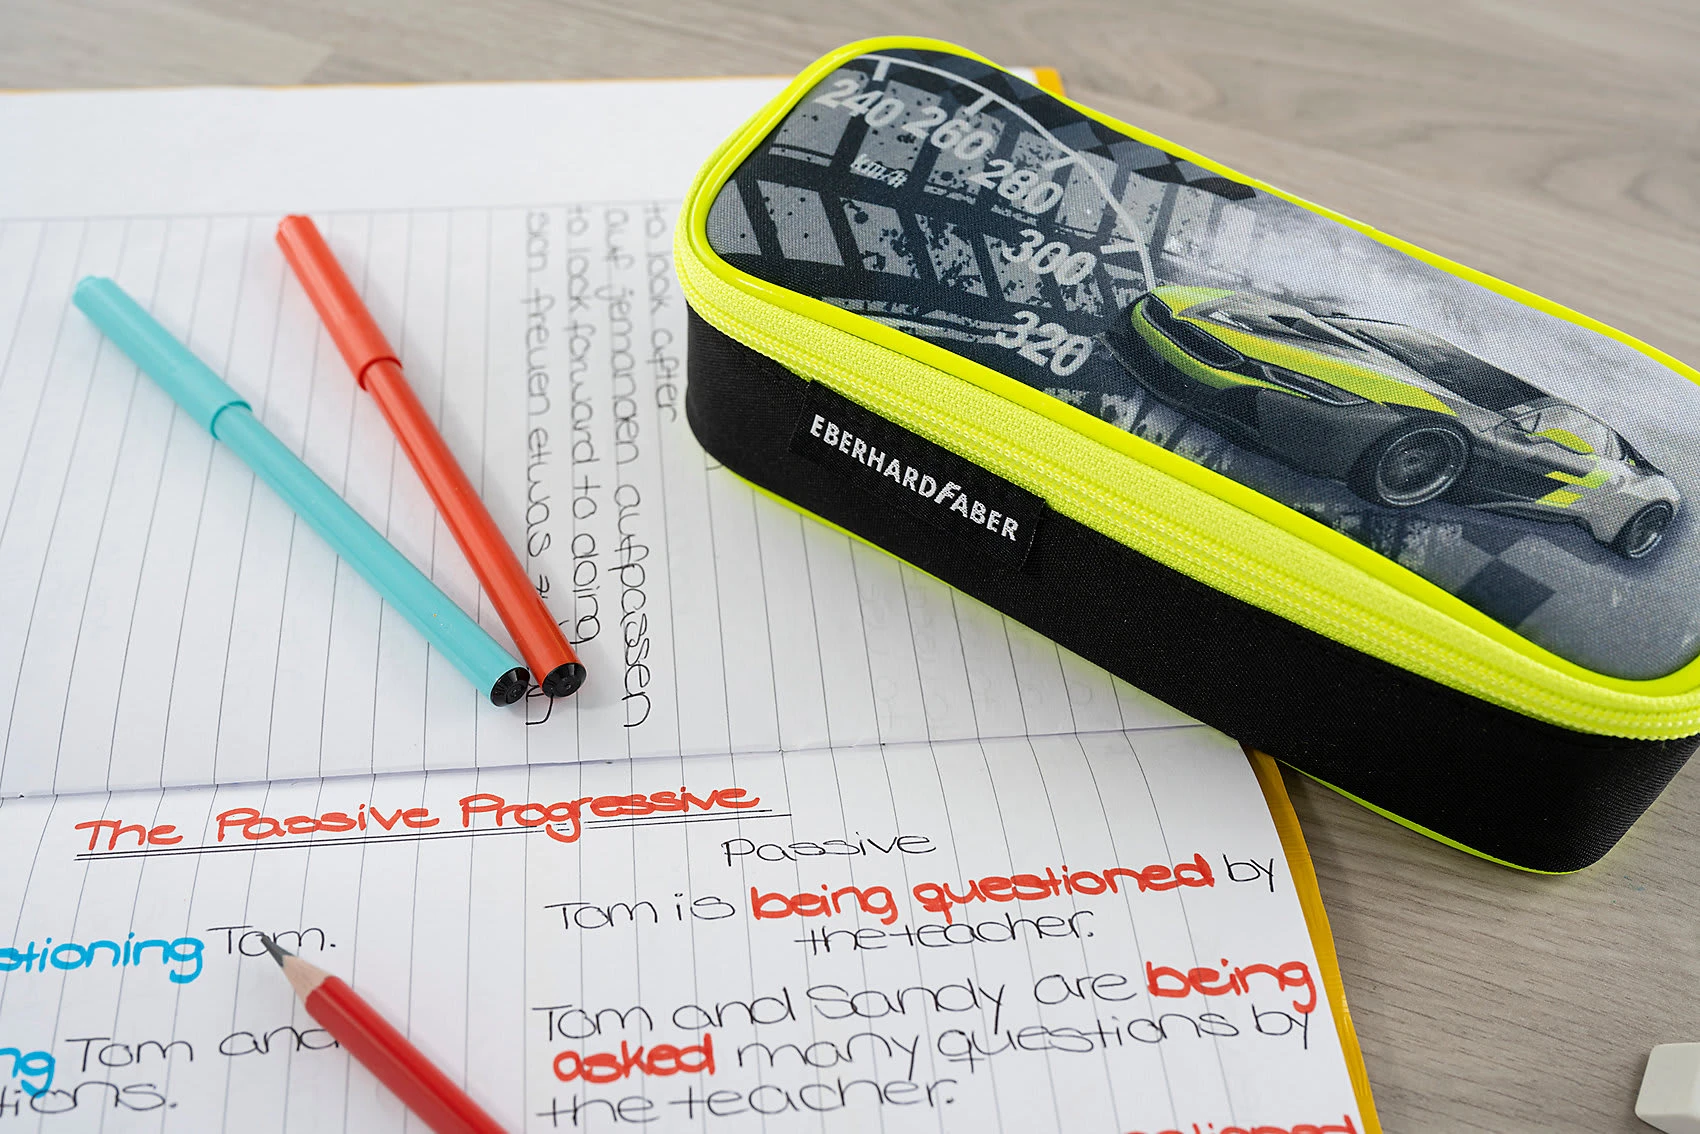 240
260
280
300
320
km/h
EBERHARDFABER
to look after
auf jemanden aufpassen
to look forward to doing
sich freuen etwas
The Passive Progressive
Passive
Tom is being questioned by
the teacher.
Tom and Sandy are being
asked many questions by
the teacher.
stioning Tom.
ng Tom and
tions.